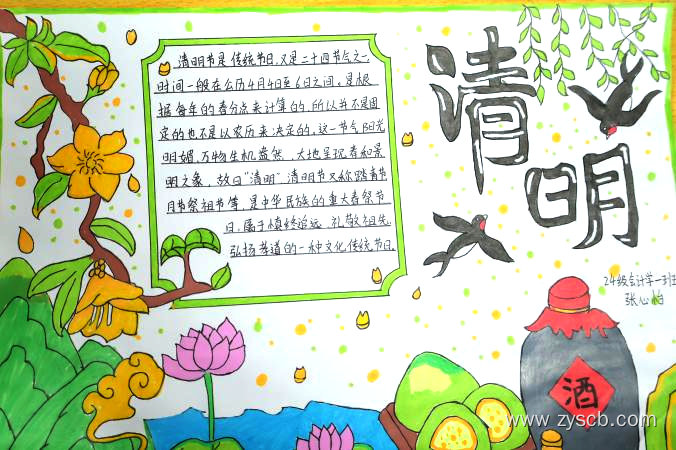 清明节是传统节日,又是二十四节气之一,
时间一般在公历4月4日至6日之间。是根
据每年的春分点来计算的,所以并不是固
定的也不是以农历来决定的。这一节气阳光
明媚,万物生机盎然,大地呈现春和景
明之象,故曰"清明"。清明节又称踏青节
月节祭祖节等,是中华民族的重大春祭节
日,属于慎终追远、礼敬祖先、
弘扬孝道的一种文化传统节日。
清明
24级会计学一班
张心怡
酒
www.zyscb.com